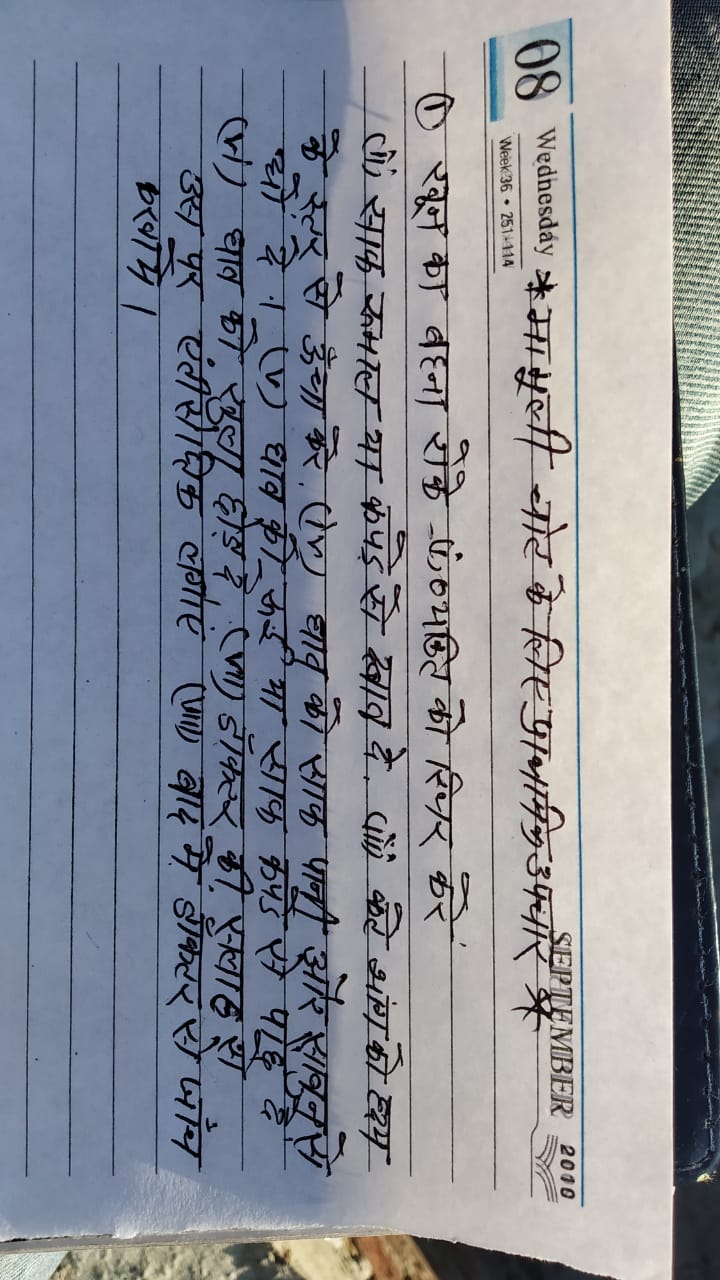 08 Wednesday SEPTEMBER 2010
Week 36 • 251-114
* मामुली चोट के लिए प्राथमिक उपचार *
① खून का बहना रोके (ii) व्यक्ति को स्थिर करे
(ii) साफ रूमाल या कपड़े से दबाव दें. (iii) कटे अंग को हृदय
के स्तर से ऊँचा करे. (iv) घाव को साफ पानी और साबुन से
धो दें। (v) घाव को रूई या साफ कपड़े से पोछ दें.
(vi) घाव को खुला छोड़ दें. (vii) डॉक्टर की सलाह से
उस पर एंटीसेप्टिक लगाएं (viii) बाद में डॉक्टर से जांच
करवायें।